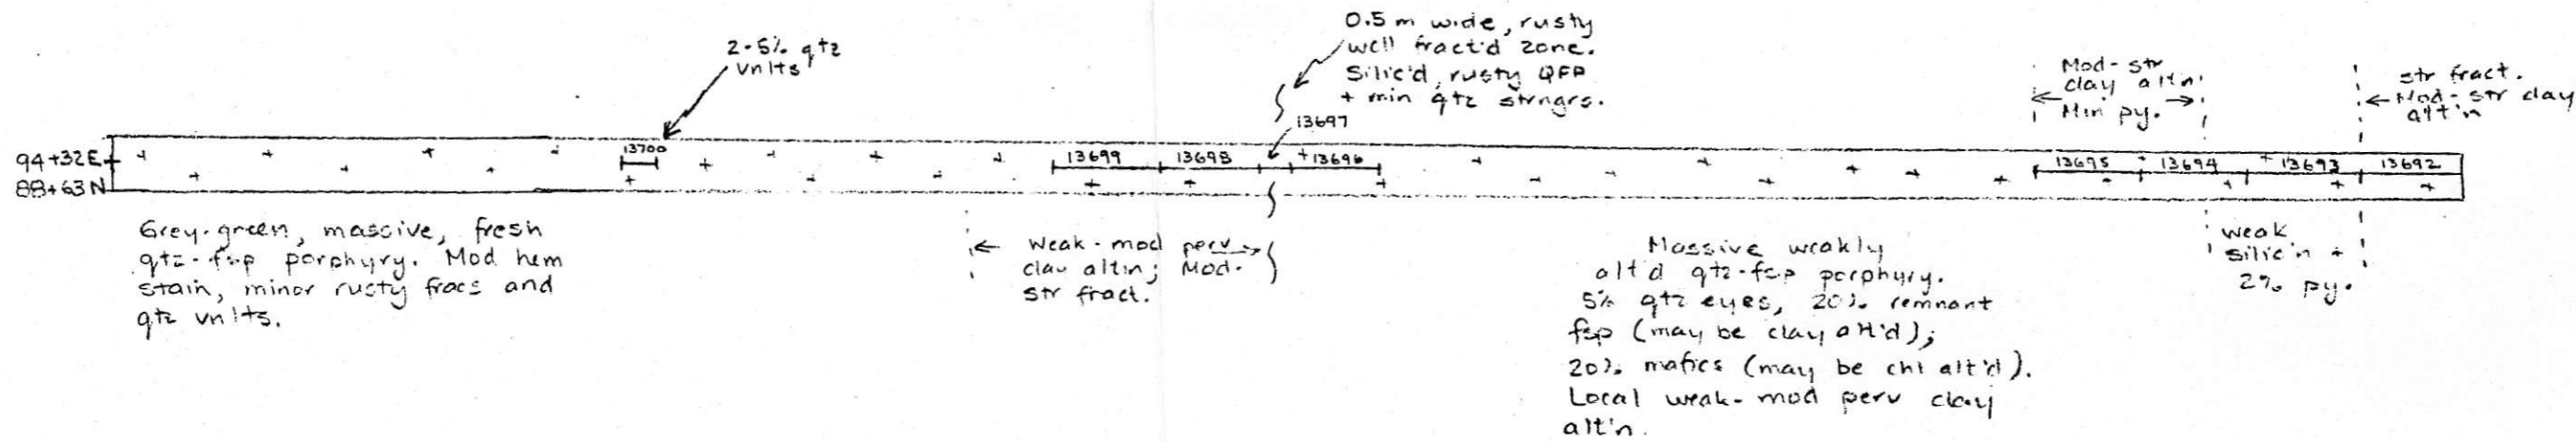 2-5% qtz
vnlts
0.5 m wide, rusty
well fract'd zone.
Silic'd, rusty QFP
+ min qtz strngrs.
13697
Mod-str
clay alt'n
Min py.
str fract.
Mod-str clay
alt'n
94+32E
88+63N
13700
13699
13698
13696
13695
13694
13693
13692
Grey-green, massive, fresh
qtz-fsp porphyry. Mod hem
stain, minor rusty fracs and
qtz vnlts.
Weak-mod perv
clay alt'n; Mod-
str fract.
Massive weakly
alt'd qtz-fsp porphyry.
5% qtz eyes, 20% remnant
fsp (may be clay alt'd);
20% mafics (may be chl alt'd).
Local weak-mod perv clay
alt'n.
weak
silic'n +
2% py.